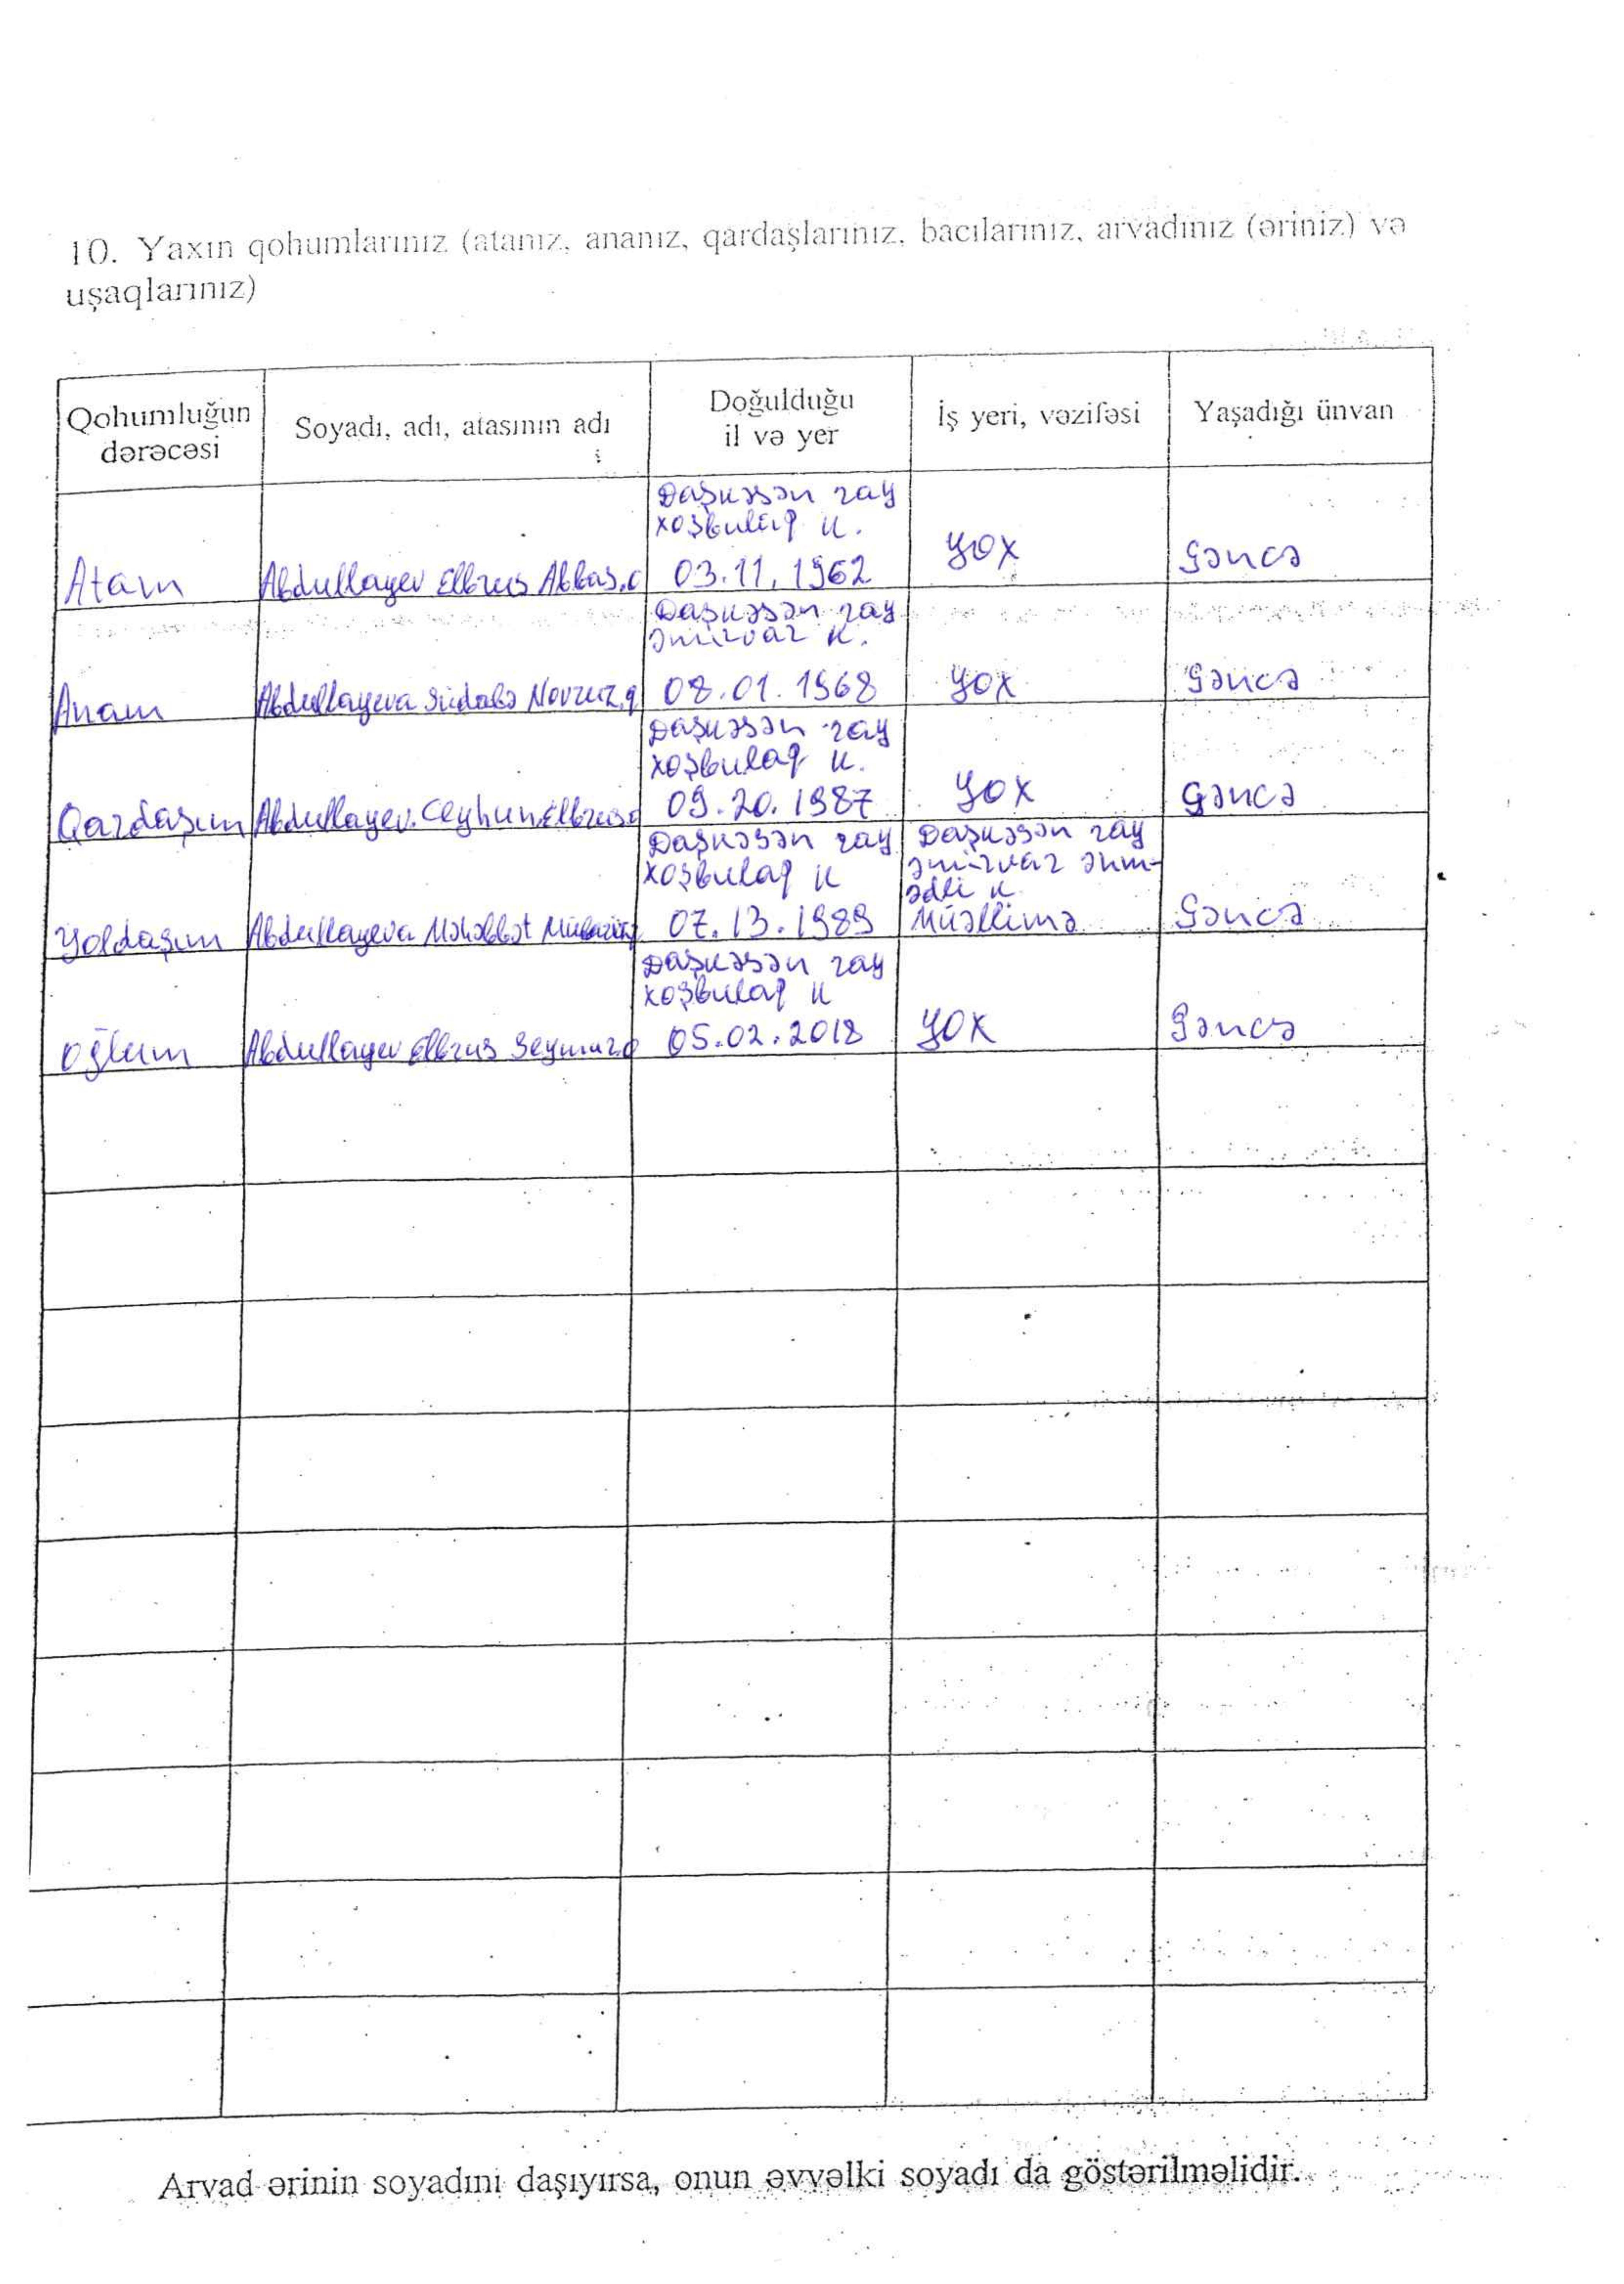 10. Yaxın qohumlarınız (atanız, ananız, qardaşlarınız, bacılarınız, arvadınız (əriniz) və
uşaqlarınız)
Qohumluğun
dərəcəsi
Soyadı, adı, atasının adı
Doğulduğu
il və yer
İş yeri, vəzifəsi
Yaşadığı ünvan
Atam
Abdullayev Elbrus Abbas.o
Daşkəsən ray
xoşbulaq k.
03.11.1962
yox
Gəncə
Anam
Abdullayeva Südabə Novruz.q
Daşkəsən ray
əmirvar k.
08.01.1968
yox
Gəncə
Qardaşım
Abdullayev. Ceyhun Elbrus o
Daşkəsən ray
xoşbulaq k.
09.20.1987
yox
Gəncə
Yoldaşım
Abdullayeva Məhəbbət
Daşkəsən ray
xoşbulaq k
07.13.1989
Daşkəsən ray
əmirvar əhm-
ədli k
Müəllimə
Gəncə
oğlum
Abdullayev Elbrus Seymur.o
Daşkəsən ray
xoşbulaq k
05.02.2018
yox
Gəncə
Arvad ərinin soyadını daşıyırsa, onun əvvəlki soyadı da göstərilməlidir.